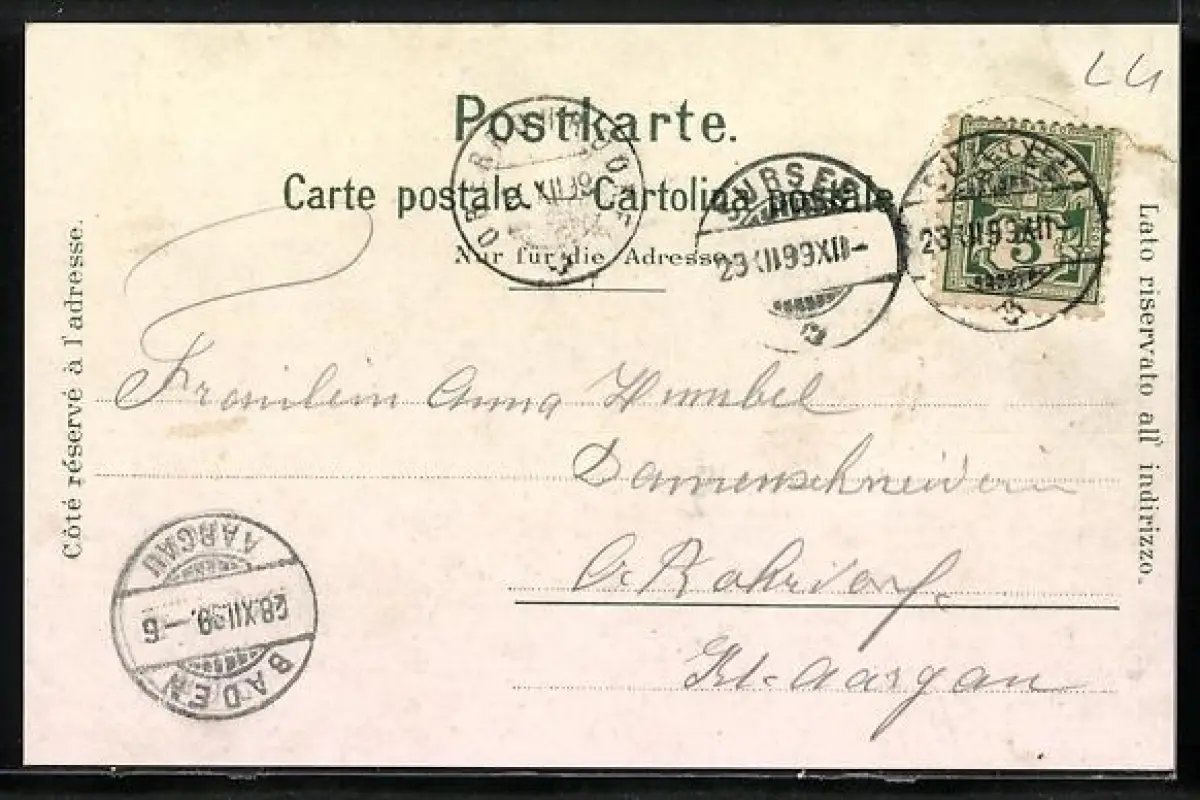 LU
Postkarte.
Carte postale. Cartolina postale.
Nur für die Adresse.
Côté réservé à l'adresse.
Lato riservato all' indirizzo.
SURSEE
HELVETIA
5
Fräulein Anna Humbel
Damenschneiderin
O. Rohrdorf.
Kt. Aargau
BADEN
AARGAU
28.XII.99.–6